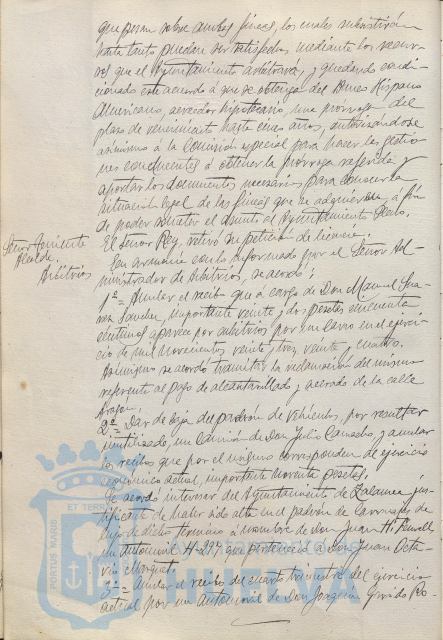 que pesan sobre ambas fincas, los cuales subsistirán
hasta tanto puedan ser satisfechos mediante los recur-
sos que el Ayuntamiento arbitrará, y quedando condi-
cionado este acuerdo á que se obtenga del Banco Hispano
Americano, acreedor hipotecario, una prórroga del
plazo de vencimiento hasta cinco años, autorizándose
asimismo á la Comisión especial para hacer las gestio-
nes conducentes á obtener la prórroga referida y
aportar los documentos necesarios para conocer la
situación legal de las fincas que se adquieran, á fin
de poder someter el asunto al Ayuntamiento Pleno.
El Señor Rey, retiró su petición de licencia.
Señor Teniente
Alcalde.
Arbitrios
En armonía con lo informado por el Señor Ad-
ministrador de Arbitrios, se acordó:
1º= Anular el recibo que á cargo de Don Manuel Sua-
rez Sanchez, importante veinte y dos pesetas cincuenta
centimos aparece por arbitrios por un carro en el ejerci-
cio de mil novecientos veinte y tres veinte y cuatro.
Asimismo se acordó tramitar la reclamación del mismo
referente al pago de alcantarillado y acerado de la calle
Aragón.
2º= Dar de baja del padrón de vehículos, por resultar
inutilizado, un Camión de Don Julio Camacho, y anular
los recibos que por el mismo corresponden de ejercicio
económico actual, importante noventa pesetas;
Se acordó interesar del Ayuntamiento de Zalamea jus-
tificante de haber sido alta en el padrón de carruajes de
lujo de dicho término á nombre de Don Juan H.
un Automóvil H-294 que perteneció á Don Juan Octa-
vio Morgado.
3º= Anular el recibo de cuarto trimestre del ejercicio
actual por un Automóvil de Don Joaquín Garrido Ro-
PORTUS MARIS ET TERRAE
HUELVA